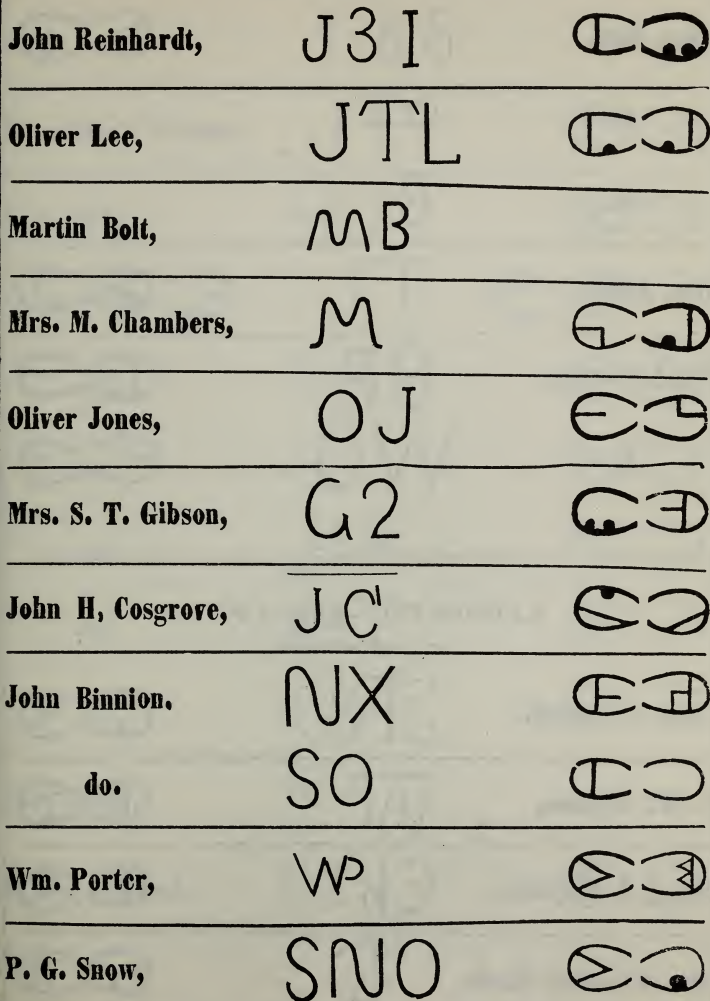 John Reinhardt, J 3 I
Oliver Lee, JTL
Martin Bolt, MB
Mrs. M. Chambers, M
Oliver Jones, OJ
Mrs. S. T. Gibson, G2
John H, Cosgrove, JC'
John Binnion. NX
do. SO
Wm. Porter, WP
P. G. Snow, SNO